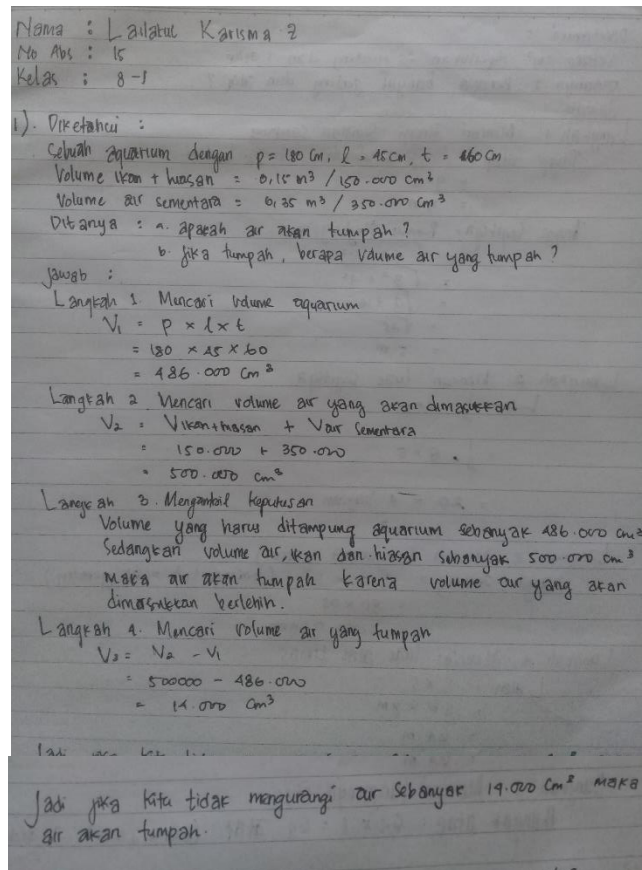 Nama : Lailatul Karisma Z
No Abs : 15
Kelas : 8-1
1). Diketahui :
Sebuah aquarium dengan p = 180 cm, l = 45cm, t = 60 cm
Volume ikan + hiasan = 0,15 m³ / 150.000 cm³
Volume air sementara = 0,35 m³ / 350.000 cm³
Ditanya : a. apakah air akan tumpah ?
b. jika tumpah, berapa volume air yang tumpah ?
Jawab :
Langkah 1. Mencari volume aquarium
V₁ = p x l x t
= 180 x 45 x 60
= 486.000 cm³
Langkah 2 Mencari volume air yang akan dimasukkan
V₂ = Vikan+hiasan + Vair sementara
= 150.000 + 350.000
= 500.000 cm³
Langkah 3. Mengambil keputusan
Volume yang harus ditampung aquarium sebanyak 486.000 cm³
Sedangkan volume air, ikan dan hiasan sebanyak 500.000 cm³
Maka air akan tumpah karena volume air yang akan
dimasukkan berlebih.
Langkah 4. Mencari volume air yang tumpah
V₃ = V₂ - V₁
= 500000 - 486.000
= 14.000 cm³
Jadi jika kita tidak mengurangi air sebanyak 14.000 cm³ maka
air akan tumpah.